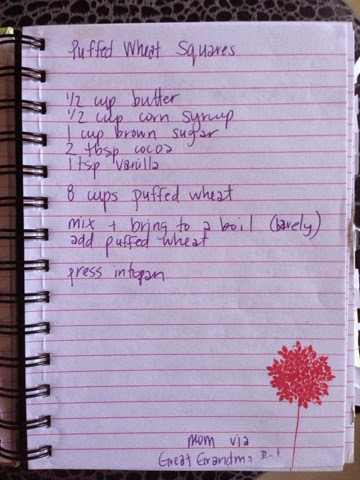 Puffed Wheat Squares
1/2 cup butter
1/2 cup corn syrup
1 cup brown sugar
2 tbsp cocoa
1 tsp vanilla
8 cups puffed wheat
mix + bring to a boil (barely)
add puffed wheat
press into pan
mom via
Great Grandma